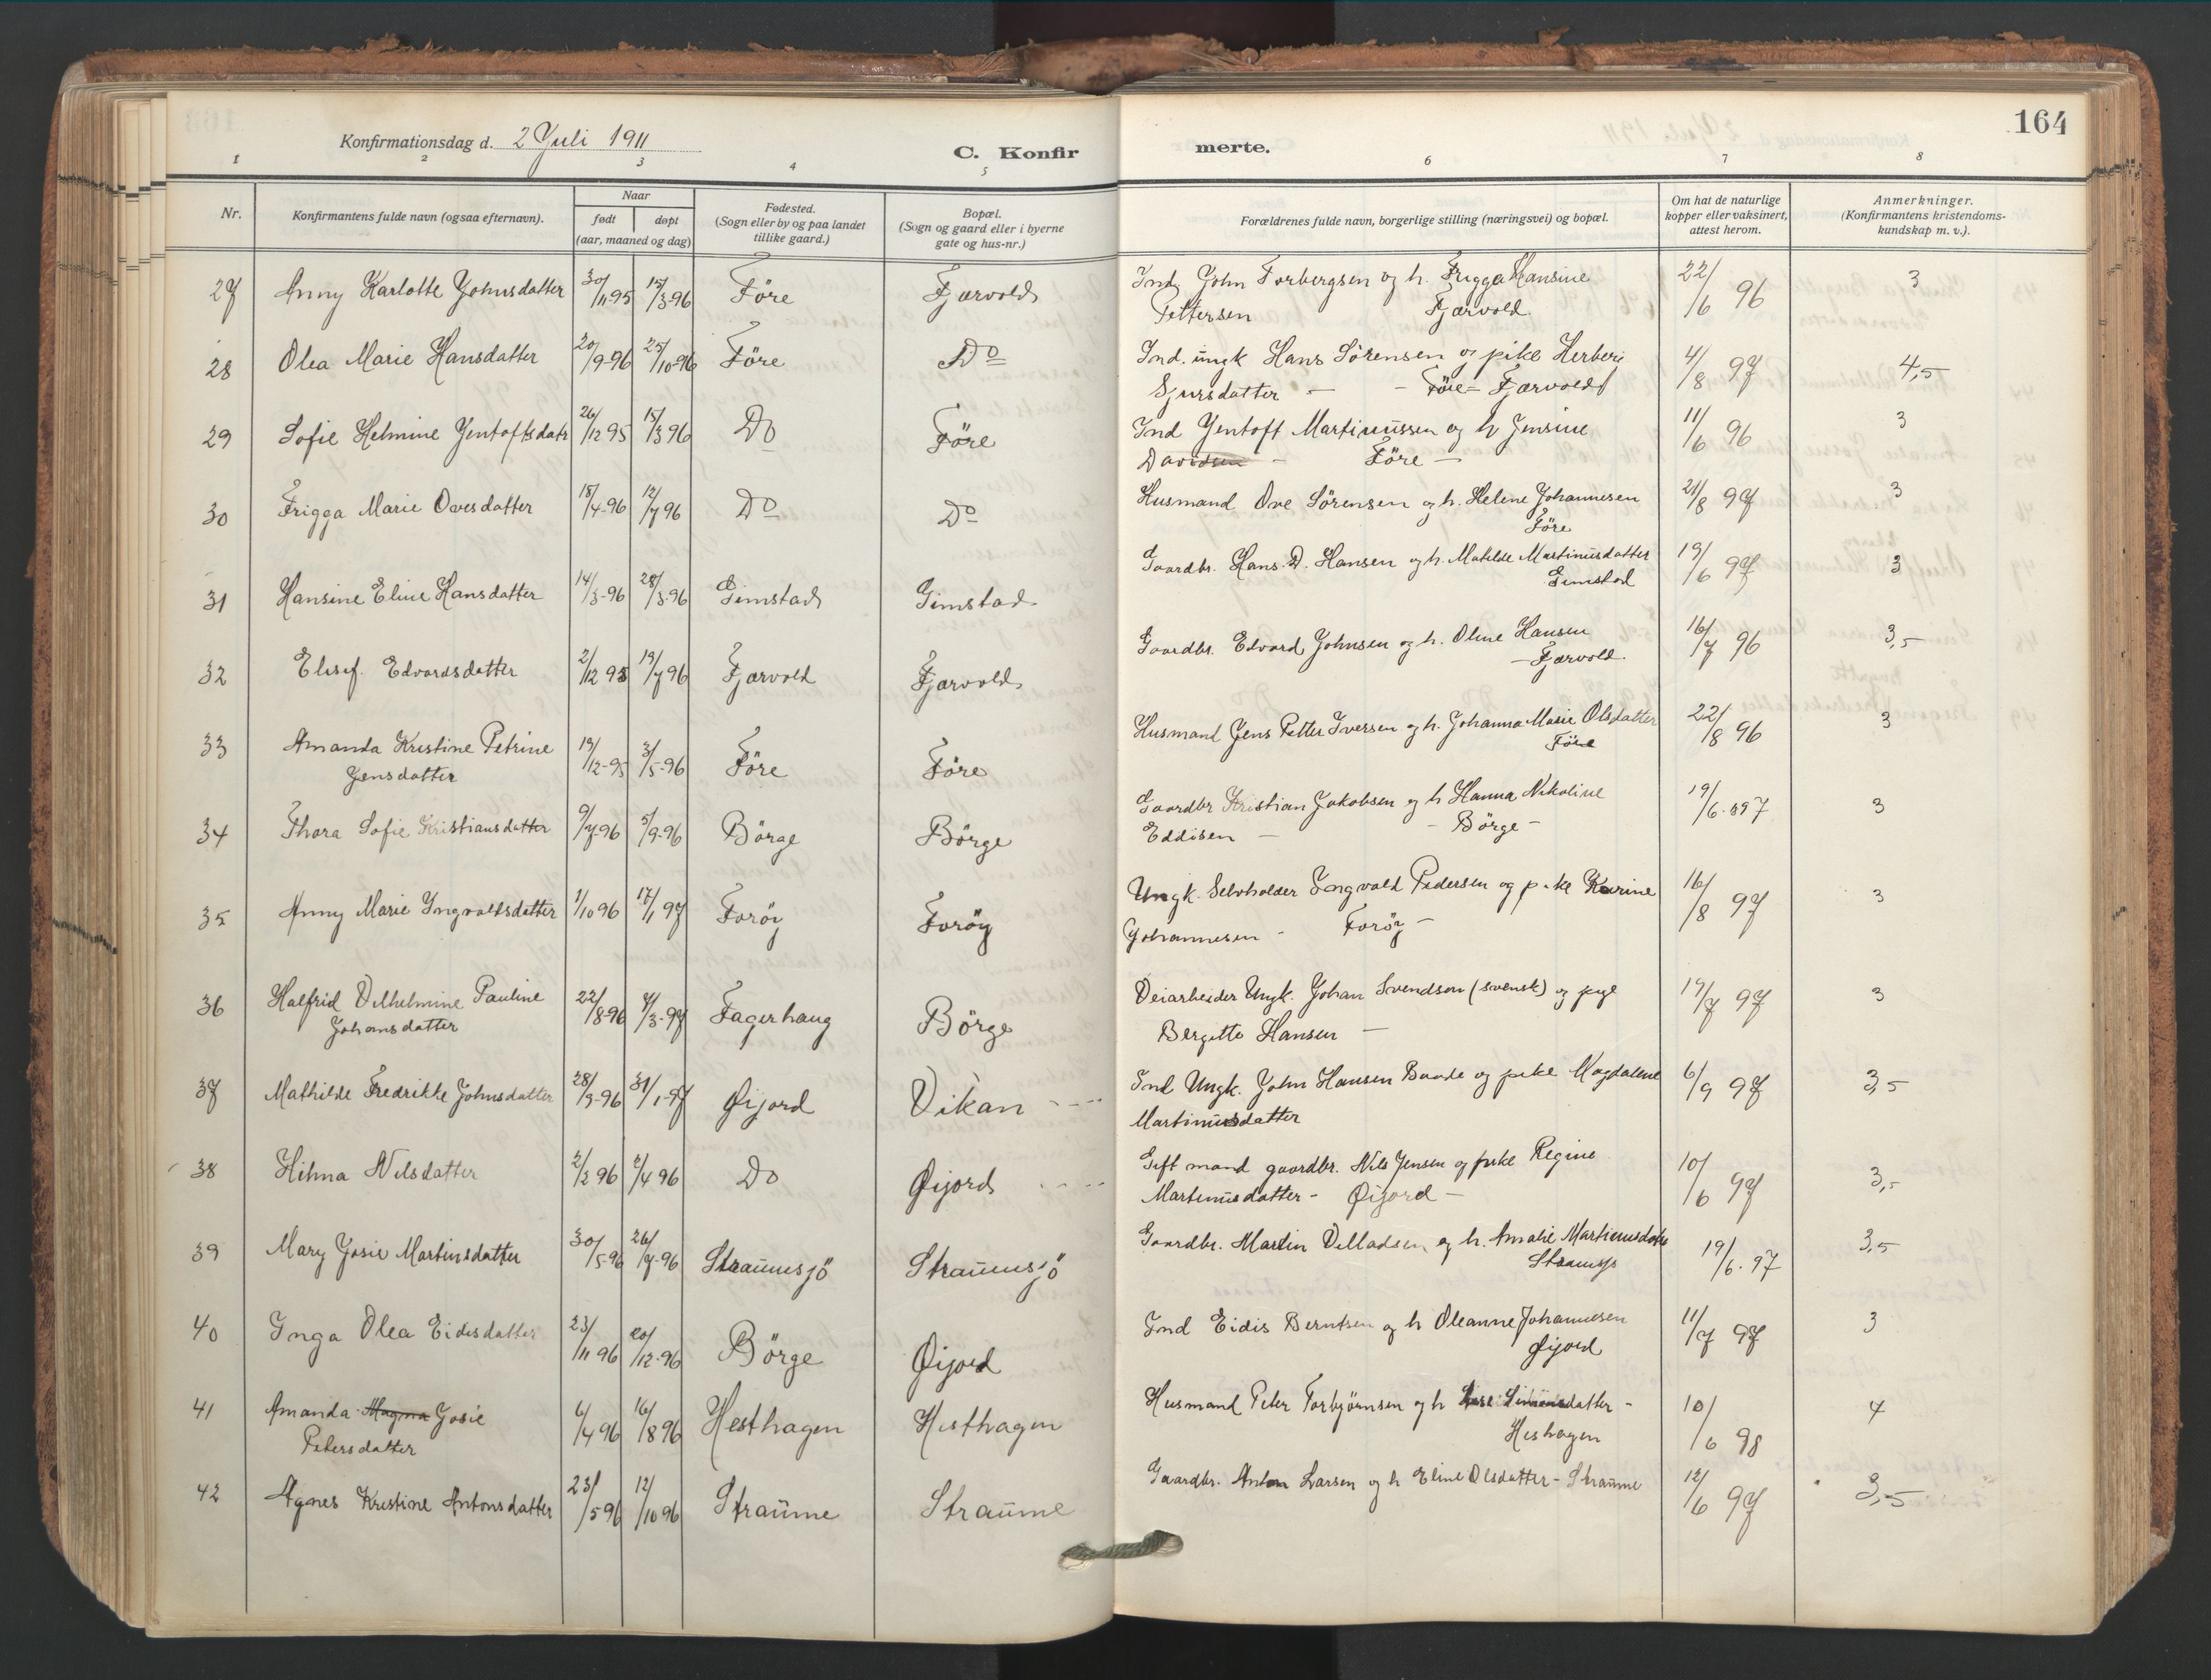 164
Konfirmationsdag d. 2 Juli 1911
C. Konfir
merte.
1 2 3 4 5 6 7 8
Nr.
Konfirmantens fulde navn (ogsaa efternavn).
Naar
født døpt
(aar, maaned og dag)
Fødested.
(Sogn eller by og paa landet
tillike gaard.)
Bopæl.
(Sogn og gaard eller i byerne
gate og hus-nr.)
Forældrenes fulde navn, borgerlige stilling (næringsvei) og bopæl.
Om hat de naturlige
kopper eller vaksinert,
attest herom.
Anmerkninger.
(Konfirmantens kristendoms-
kundskap m. v.).
27 Anny Karlotte Johnsdatter 30/11 95 15/3-96 Före Fjærvold Ind. John Torbergsen og h. Frigga Hansine 22/6 96 3
Pettersen Fjærvold.
28 Olea Marie Hansdatter 20/9-96 25/10-96 Före Do Ind. ungk Hans Sörensen og pike Herberg 4/8 97 4,5
Sjursdatter - - Före - Fjærvold
29 Sofie Helmine Jentoftsdatr 26/12 95 15/3 96 Do Före Ind Jentoft Martinussen og h Jensine 11/6 96 3
Davidsen - Före -
30 Frigga Marie Ovesdatter 18/4-96 12/7 96 Do Do Husmand Ove Sörensen og h. Helene Johannesen 21/8 97 3
Före
31 Hansine Eline Hansdatter 14/3-96 28/3-96 Gimstad Gimstad Gaardbr. Hans. D. Hansen og h. Matilde Martinusdatter 19/6 97 3
Gimstad
32 Elisef. Edvardsdatter 2/12 95 19/7 96 Fjærvold Fjærvold Gaardbr. Edvard Johnsen og h. Oline Hansen 16/7 96 3,5
- Fjærvold.
33 Amanda Kristine Petrine 19/12-95 3/5-96 Före Före Husmand Jens Petter Iversen og h. Johanna Marie Olsdatter 22/8 96 3
Jensdatter Före
34 Thora Sofie Kristiansdatter 9/7-96 5/9-96 Börge Börge Gaardbr Kristian Jakobsen og h Hanna Nikoline 19/6.897 3
Eddisen - - Börge -
35 Anny Marie Ingvaldsdatter 1/10 96 17/1 97 Foröy Foröy Ungk. Selvholder Ingvald Pedersen og pike Karine 16/8 97 3
Johannesen - Foröy -
36 Halfrid Vilhelmine Pauline 22/8-96 7/3-97 Fagerhaug Börge Veiarbeider Ungk. Johan Svendson (svensk) og pige 19/7 97 3
Johansdatter Bergitte Hansen -
37 Mathilde Fredrikke Johnsdatter 28/3-96 31/1-97 Øijord Vikan Ind Ungk. John Hansen Baade og pike Magdalene 6/9 97 3,5
Martinusdatter
38 Hilma Nilsdatter 2/2 96 2/4 96 Do Øijord Gift mand gaardbr. Nils Jensen og pike Regine 10/6 97 3,5
Martinusdatter - Øijord -
39 Mary Josie Martinsdatter 30/5-96 26/7-96 Straumsjö Straumsjö Gaardbr. Martin Villadsen og h. Amalie Martinusdatr 19/6.97 3,5
Straumsjö
40 Inga Olea Eidisdatter 23/11 96 20/12-96 Börge Øijord Ind Eidis Berntsen og h Oleanne Johannesen 11/7 97 3
Øijord
41 Amanda Magna Josie 6/4 96 16/8 96 Hesthagen Hesthagen Husmand Peter Torbjörnsen og h Simonsdatter - 10/6 98 4
Petersdatter Heshagen
42 Agnes Kristine Antonsdatter 23/5 96 12/10 96 Straume Straume Gaardbr. Anton Larsen og h Eline Olsdatter - Straume 12/6 97 3,5